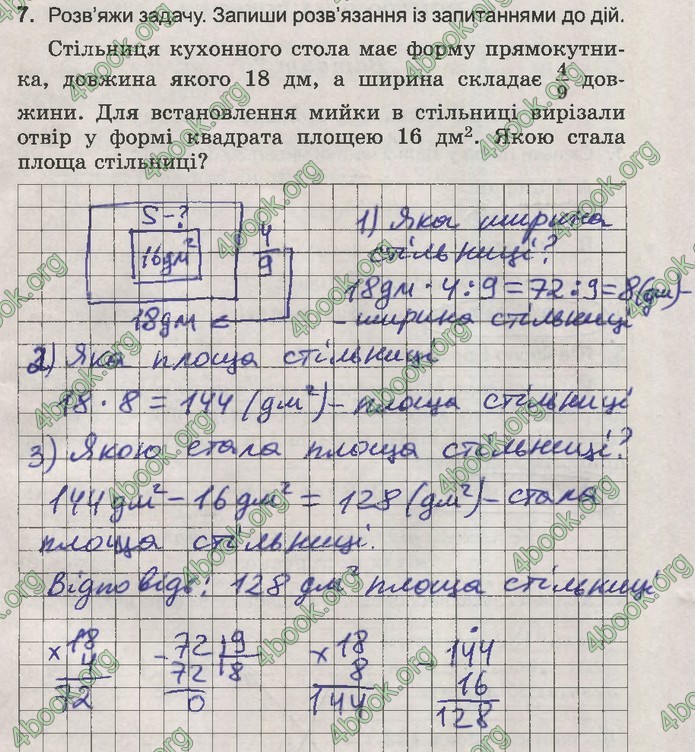 7. Розв'яжи задачу. Запиши розв'язання із запитаннями до дій.
Стільниця кухонного стола має форму прямокутни-
ка, довжина якого 18 дм, а ширина складає 4/9 дов-
жини. Для встановлення мийки в стільниці вирізали
отвір у формі квадрата площею 16 дм². Якою стала
площа стільниці?
S-?
16дм²
4/9
18дм
1) Яка ширина
стільниці?
18дм · 4 : 9 = 72 : 9 = 8(дм)-
- ширина стільниці
2) Яка площа стільниці
18 · 8 = 144 (дм²) - площа стільниці
3) Якою стала площа стільниці?
144 дм² - 16 дм² = 128 (дм²) - стала
площа стільниці.
Відповідь: 128 дм² площа стільниці
× 18
4
72
- 72 | 9
72 | 8
0
× 18
8
144
- 144
16
128
4book.org